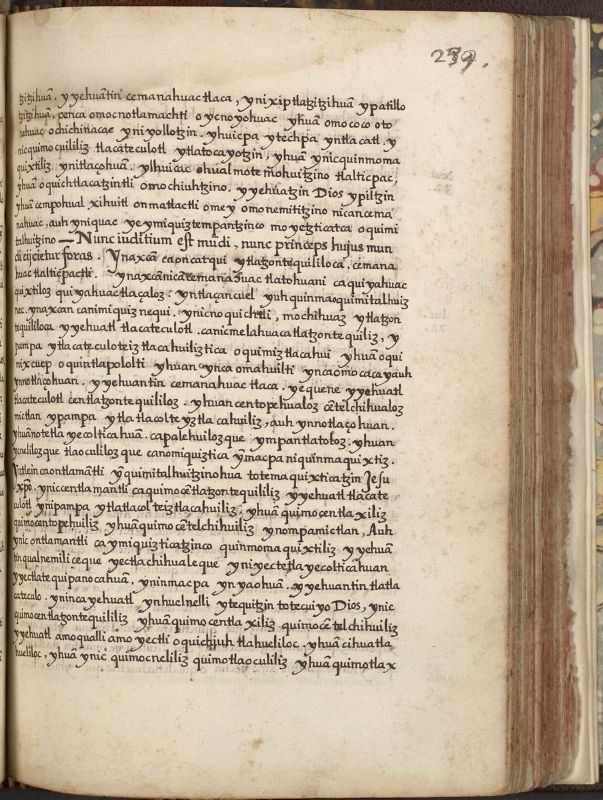 239.
tzitzihuā. yyehuātin cemanahuac tlaca, ynixiptlatzitzihuā ypatillo
tzitzihuā, çenca omocnotlamachti oycnoyohuac yhuā omococo oto
nehuac ochichinacac yniyollotzin. yhuicpa ytechpa yntlacatl. y
nicquimocuililiz tlacateculotl ytlatocayotzin, yhuā ynicquinmoma
quixtiliz ynitlaçohuā. ylhuicac ohualmotemohuitzino tlalticpac,
yhuā oquichtlacatzintli omochiuhtzino. yyehuatzin Dios ypiltzin
yhuā cempohual xihuitl onmatlactli omey omonemititzino nicancema
nahuac, auh yniquac yeymiquiztempantzinco moyetzticatca oquimi
talhuitzino — Nunc iuditium est mūdi, nunc princeps hujus mun
di eijcietur foras. Ynaxcā capnicatqui ytlatzontequililoca, cemana
huac tlalticpactli. ynaxcānicā cemanahuac tlatohuani ca quiyahuac
quixtiloz quiyahuac tlaçaloz. yntlaçancuel yuhquinmaoquimitalhuiz
nec. ynaxcan canimiquiznequi. ynicnoquichtli, mochihuaz ytlatzon
tequililoca yyehuatl tlacateculotl. canicmelahuacatlatzontequiliz, y
pampa ytlacateculoteiztlacahuiliztica oquimiztlacahui yhuā oqui
mixcuep oquintlapololti yhuan ynica omahuilti yncaomocacayauh
ynnotlaçohuan. yyehuantin cemanahuac tlaca. yequene yyehuatl
tlacateculotl centlatzontequililoz. yhuan centopehualoz cētelchihualoz
mictlan ypampa ytlatlacolteyztlacahuiliz, auh ynnotlaçohuan.
yhuā notetlayecolticahuā. capalehuilozque ympantlatoloz. yhuan
ycnelilozque tlaoculilozque canomiquiztica ȳmacpa niquinmaquixtiz.
Yntlein caontlamātli ȳquimitalhuitzinohua totemaquixticatzin Jesu
xp̄o. yniccentlamantli caquimocētlatzontequililiz yyehuatl tlacate
culotl ynipampa ytlatlacolteiztlacahuiliz. yhuā quimocentlaxiliz
quimocentopehuiliz yhuā quimocētelchihuiliz ynompa mictlan, Auh
ynic ontlamantli ca ymiquizticatzinco quinmomaquixtiliz yyehuā
tin qualnemiliceque yectlachihualeque yniyectetlayecolticahuan
yyectlatequipanocahuā, yninmacpa ynyaohuā. yyehuantin tlatla
cateculo. yninca yehuatl ynhuelnelli ytequitzin totecuiyo Dios, ynic
quimocentlatzontequililiz yhuā quimocentlaxiliz quimocētelchihuiliz
yyehuatl amoqualli amo yectli oquichiuh tlahueliloc. yhuā cihuatla
hueliloc, yhuā ynic quimocneliliz quimotlaoculiliz yhuā quimotlax